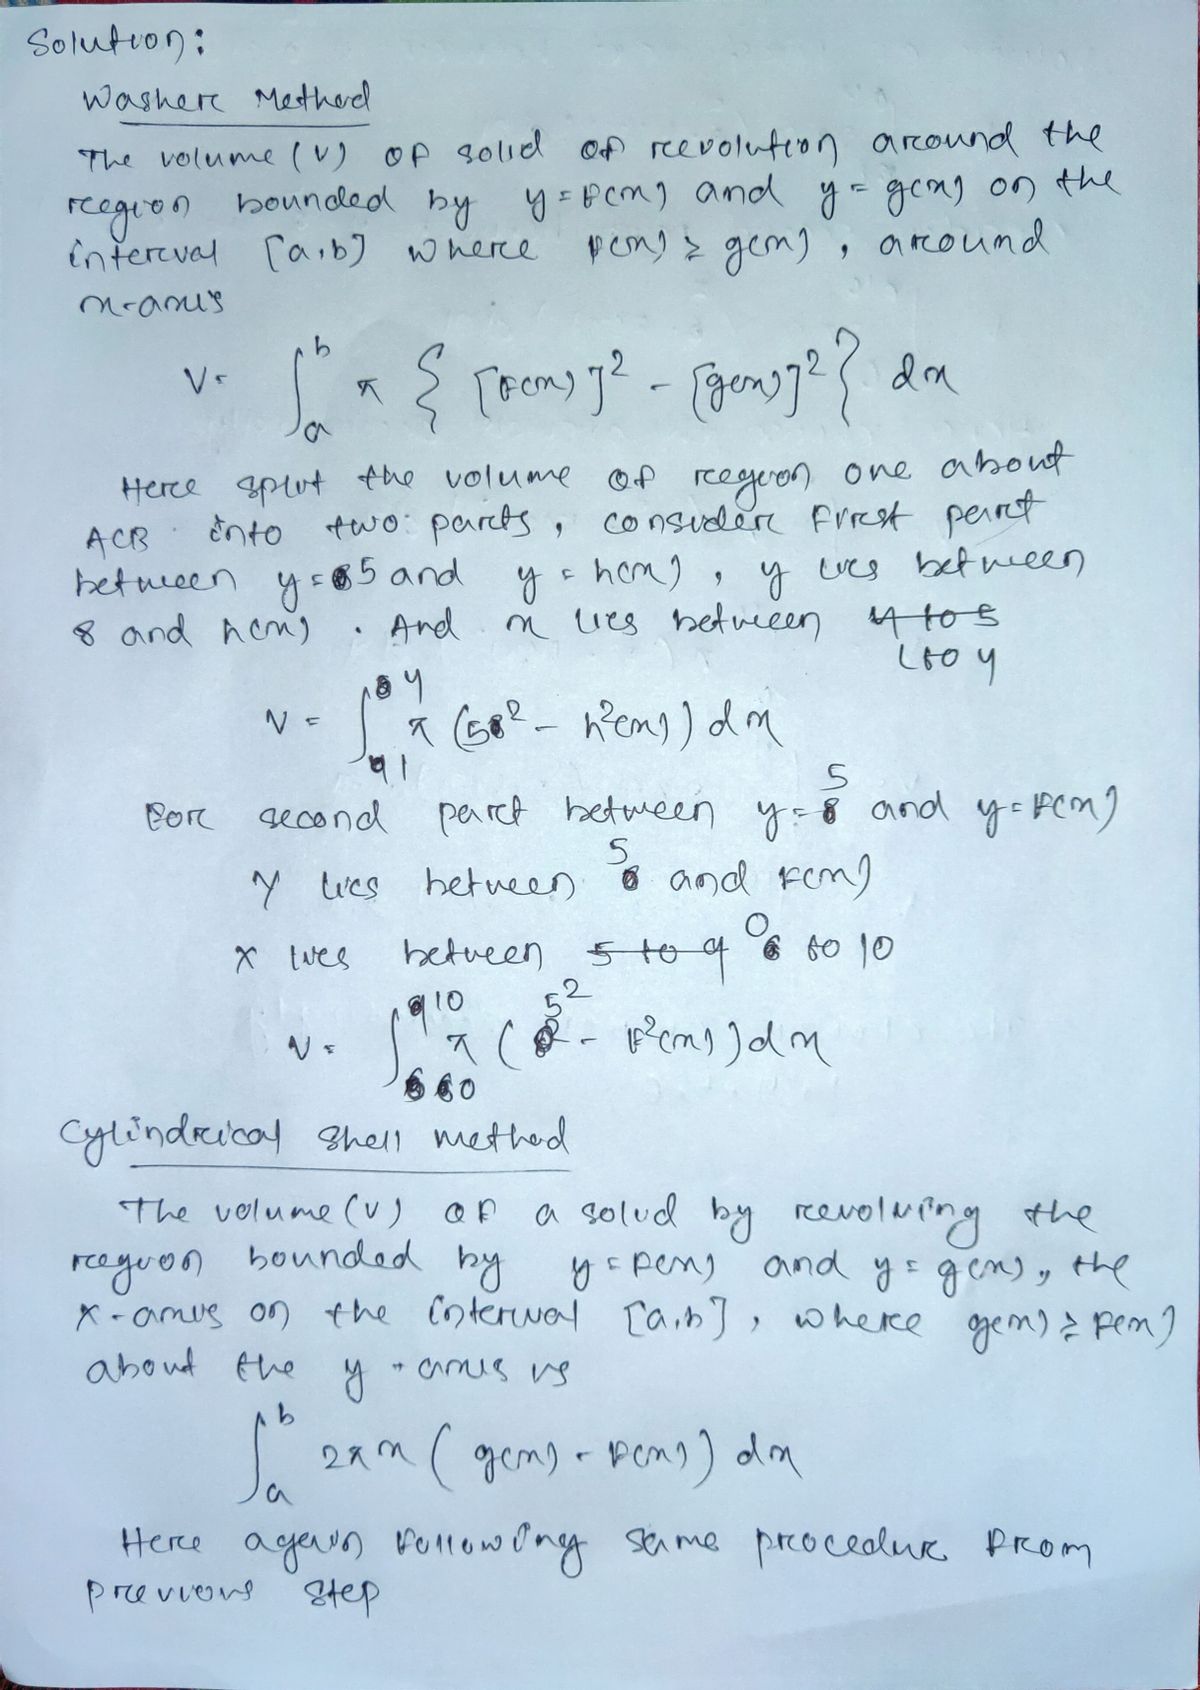 Solution:
Washer Method
The volume (V) of solid of revolution around the
region bounded by y = f(x) and y = g(x) on the
interval [a,b] where f(x) ≥ g(x), around
x-axis
V = ∫_a^b π { [f(x)]² - [g(x)]² } dx
Here split the volume of region one about
ACB into two parts, consider first part
between y = 5 and y = h(x), y lies between
8 and h(x). And x lies between 4 to 5
1 to 4
V = ∫_1^4 π (5² - h²(x)) dx
For second part between y = 5 and y = f(x)
y lies between 5 and f(x)
x lies between 5 to 9 0 to 10
V = ∫_0^10 π (5² - f²(x)) dx
Cylindrical shell method
The volume (V) of a solid by revolving the
region bounded by y = f(x) and y = g(x), the
x-axis on the interval [a,b], where g(x) ≥ f(x)
about the y-axis is
∫_a^b 2πx (g(x) - f(x)) dx
Here again following same procedure from
previous step